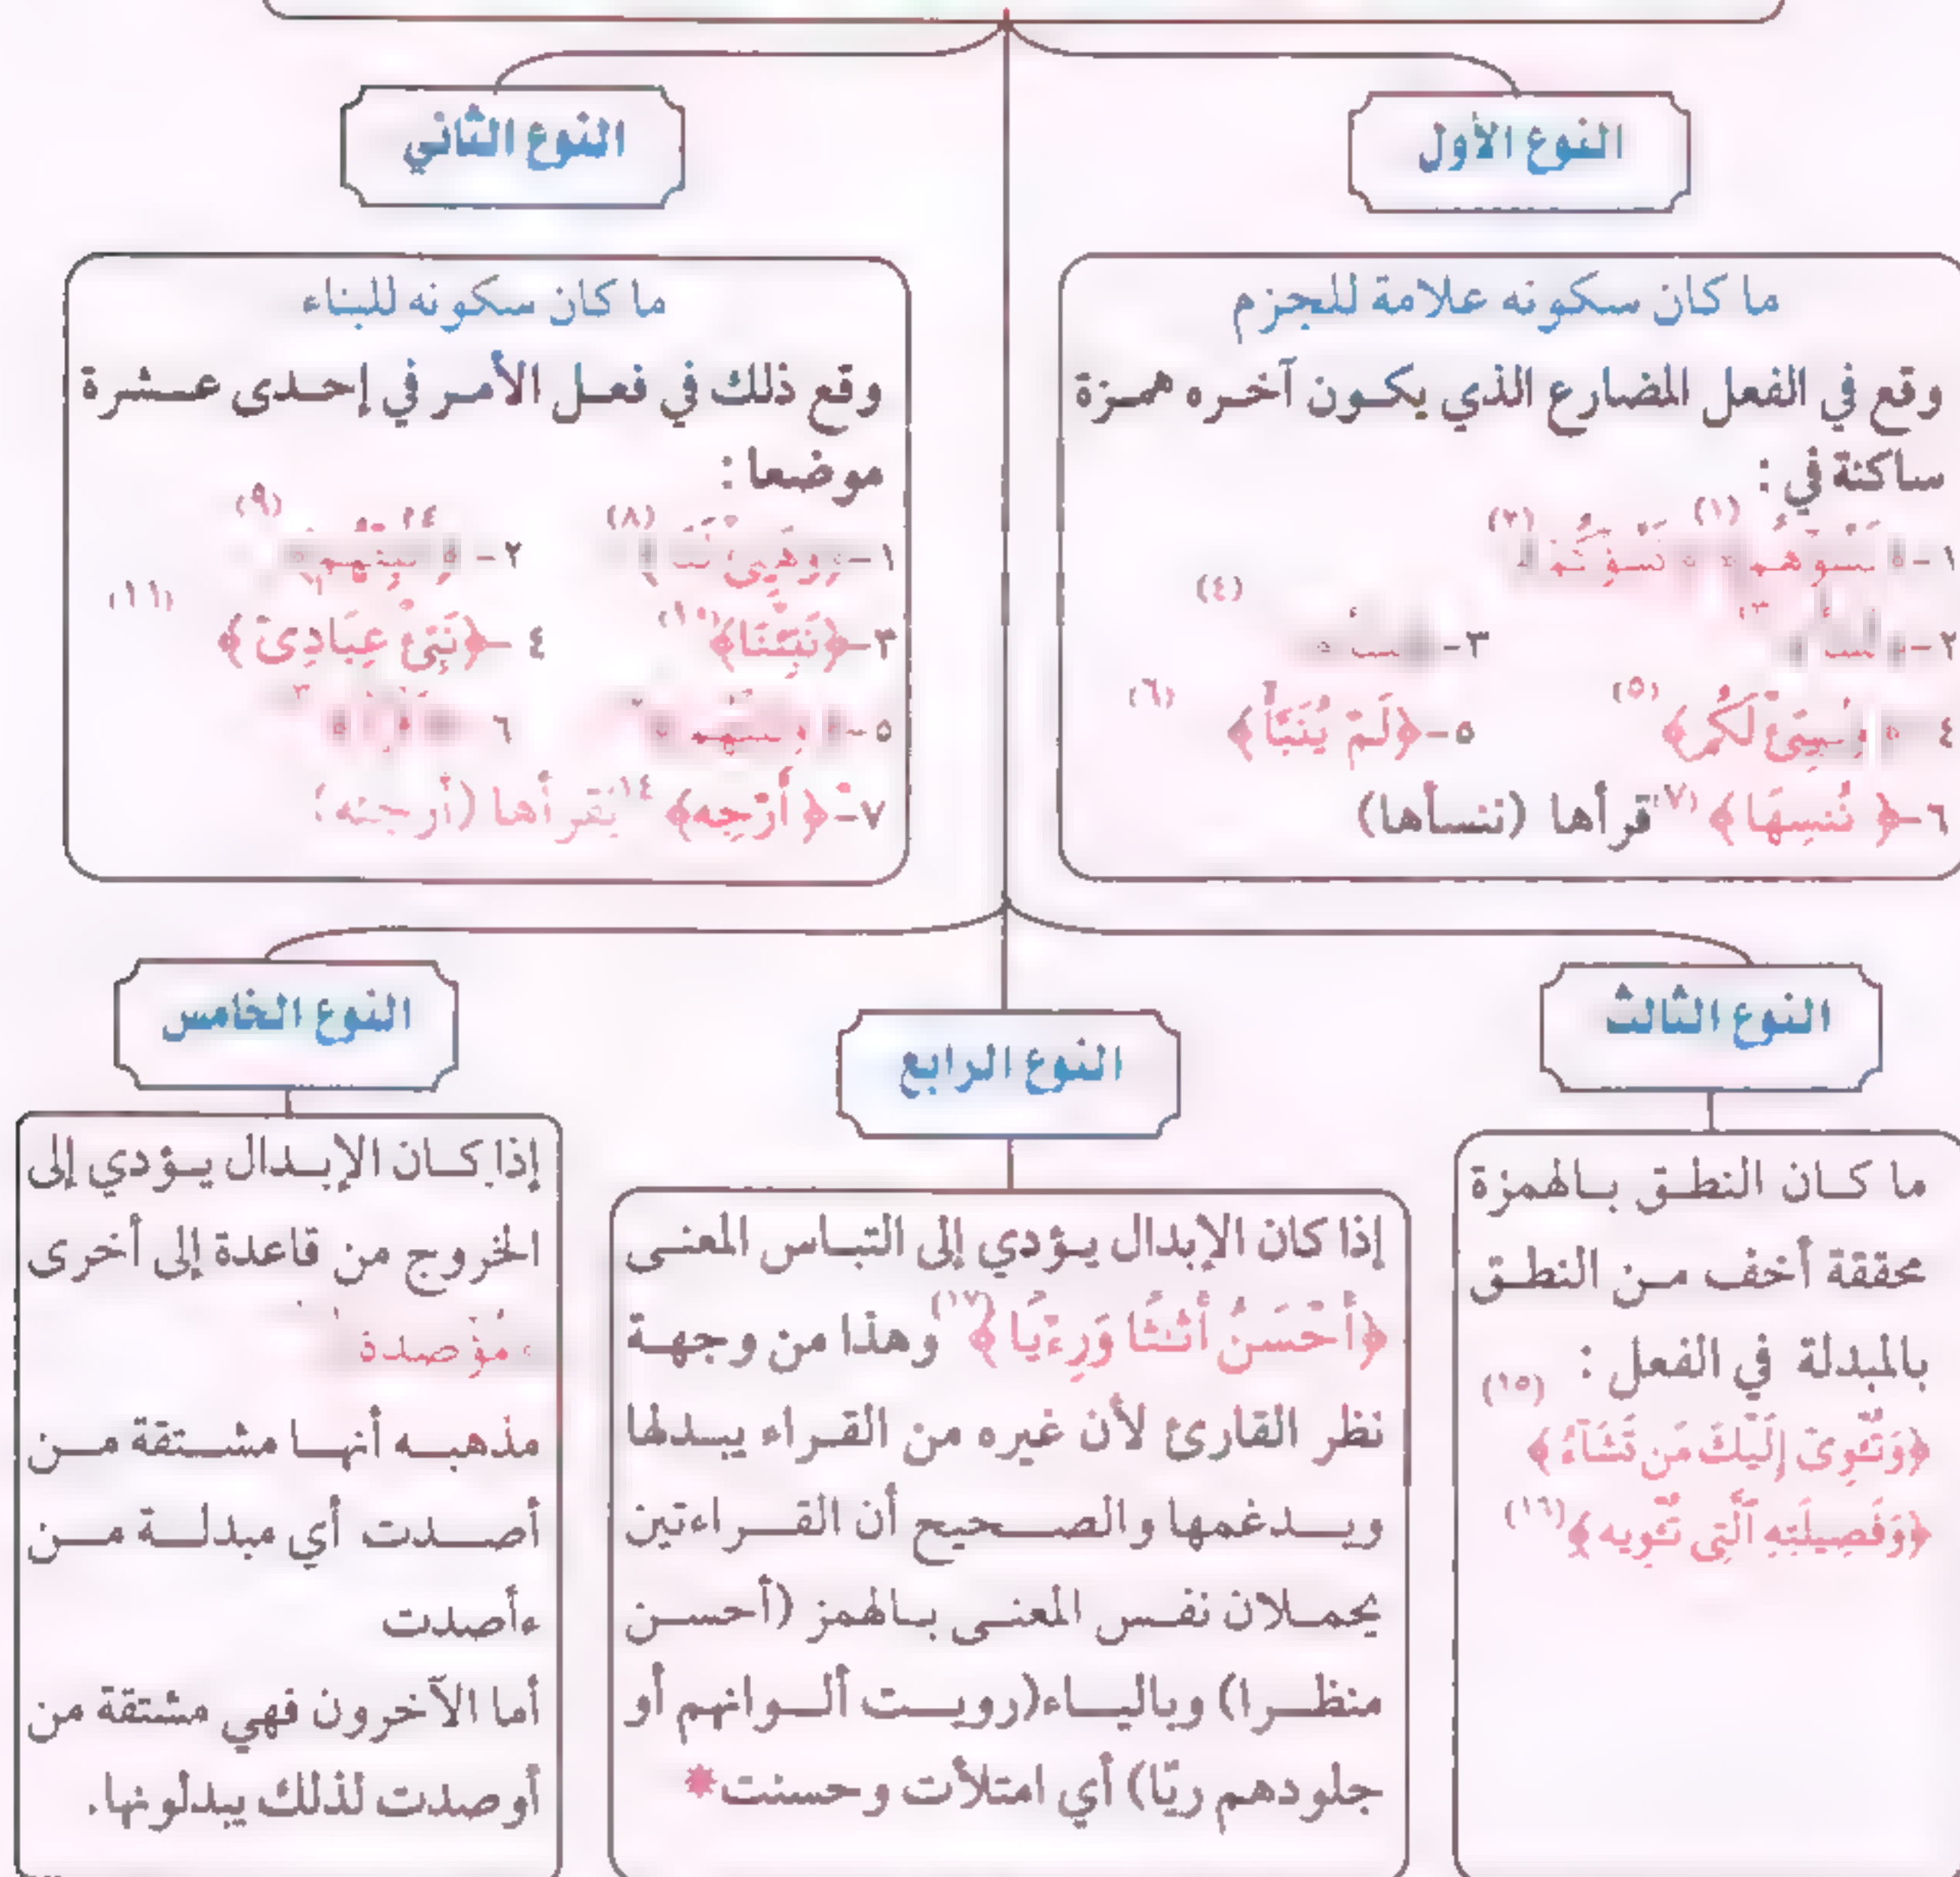 النوع الأول
ما كان سكونه علامة للجزم
وقع في الفعل المضارع الذي يكون آخره همزة
ساكنة في :
١- تَسُؤْهُمْ (١) تَسُؤْكُمْ (٢)
٢-
٣-
٤ لَكُم (٥)
٥-﴿لَمْ يُنَبَّأْ﴾ (٦)
٦-﴿ نُنسِهَا ﴾ (٧) قرأها (ننسأها)
النوع الثاني
ما كان سكونه للبناء
وقع ذلك في فعل الأمر في إحدى عشرة
موضعا :
١- وَهَيِّئْ لَنَا (٨)
٢- (٩)
٣-﴿نَبِّئْنَا﴾ (١٠)
٤ -﴿نَبِّئْ عِبَادِىٓ ﴾ (١١)
٥-
٦ -
٧-﴿ أَرْجِه﴾ ١٤ يقرأها (أرجئه)
النوع الثالث
ما كان النطق بالهمزة
محققة أخف من النطق
بالمبدلة في الفعل :
﴿وَتُـْٔوِىٓ إِلَيْكَ مَن تَشَآءُ﴾ (١٥)
﴿وَفَصِيلَتِهِ ٱلَّتِى تُـْٔوِيه﴾ (١٦)
النوع الرابع
إذا كان الإبدال يؤدي إلى التباس المعنى
﴿أَحْسَنُ أَثَـٰثًا وَرِءْيًا ﴾ (١٧) وهذا من وجهة
نظر القارئ لأن غيره من القراء يبدلها
ويدغمها والصحيح أن القراءتين
يحملان نفس المعنى بالهمز (أحسن
منظرا) وبالياء(رويت ألوانهم أو
جلودهم ريّا) أي امتلأت وحسنت*
النوع الخامس
إذا كان الإبدال يؤدي إلى
الخروج من قاعدة إلى أخرى
مؤصدة
مذهبه أنها مشتقة من
أصدت أي مبدلة من
ءأصدت
أما الآخرون فهي مشتقة من
أوصدت لذلك يبدلونها.